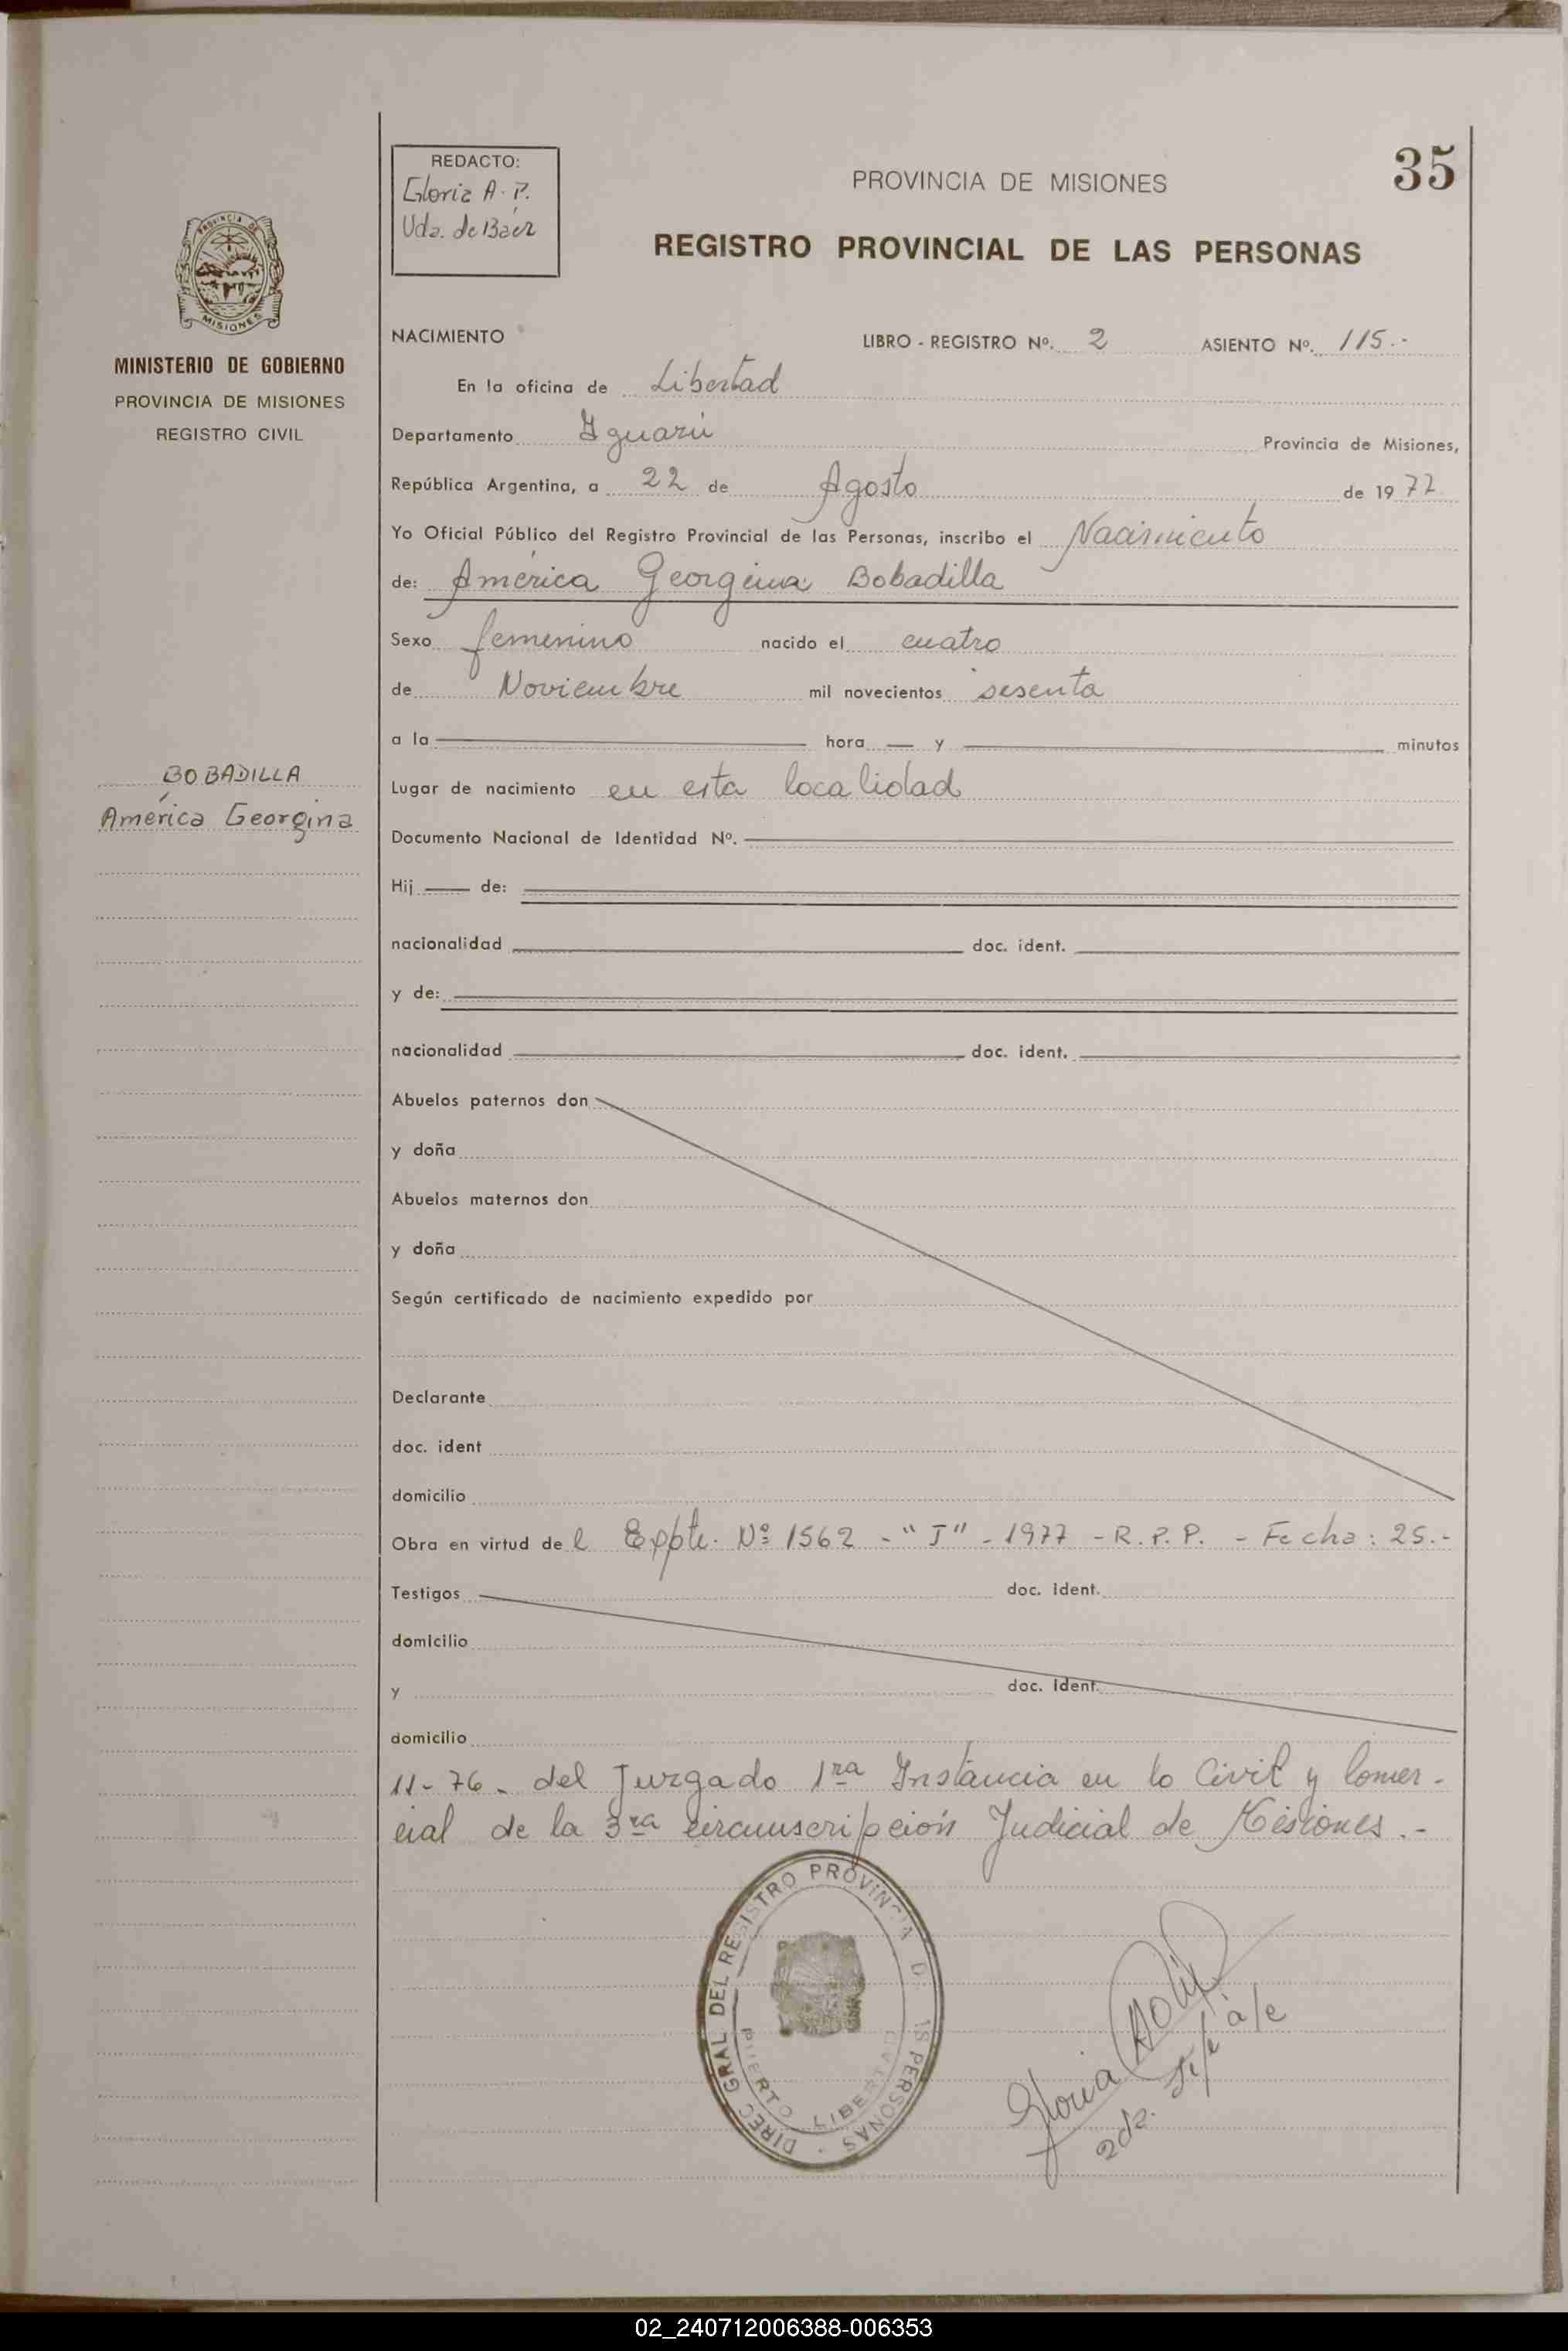 35
REDACTO:
Gloria A. P.
Vda. de Báez
PROVINCIA DE MISIONES
REGISTRO PROVINCIAL DE LAS PERSONAS
PROVINCIA DE
MISIONES
MINISTERIO DE GOBIERNO
PROVINCIA DE MISIONES
REGISTRO CIVIL
BOBADILLA
América Georgina
NACIMIENTO LIBRO - REGISTRO Nº. 2 ASIENTO Nº. 115.-
En la oficina de Libertad
Departamento Iguazú Provincia de Misiones,
República Argentina, a 22 de Agosto de 1977
Yo Oficial Público del Registro Provincial de las Personas, inscribo el Nacimiento
de: América Georgina Bobadilla
Sexo femenino nacido el cuatro
de Noviembre mil novecientos sesenta
a la hora y minutos
Lugar de nacimiento en esta localidad
Documento Nacional de Identidad Nº.
Hij de:
nacionalidad doc. ident.
y de:
nacionalidad doc. ident.
Abuelos paternos don
y doña
Abuelos maternos don
y doña
Según certificado de nacimiento expedido por
Declarante
doc. ident
domicilio
Obra en virtud del Expte. Nº 1562 - "J" - 1977 - R.P.P. - Fecha: 25.-
Testigos doc. ident.
domicilio
y doc. ident.
domicilio
11-76- del Juzgado 1ra Instancia en lo Civil y Comer-
cial de la 3ra circunscripción Judicial de Misiones.-
DIREC GRAL DEL REGISTRO PROVINCIA D. AS PERSONAS
PUERTO LIBERTAD
Gloria
a/e
02_240712006388-006353